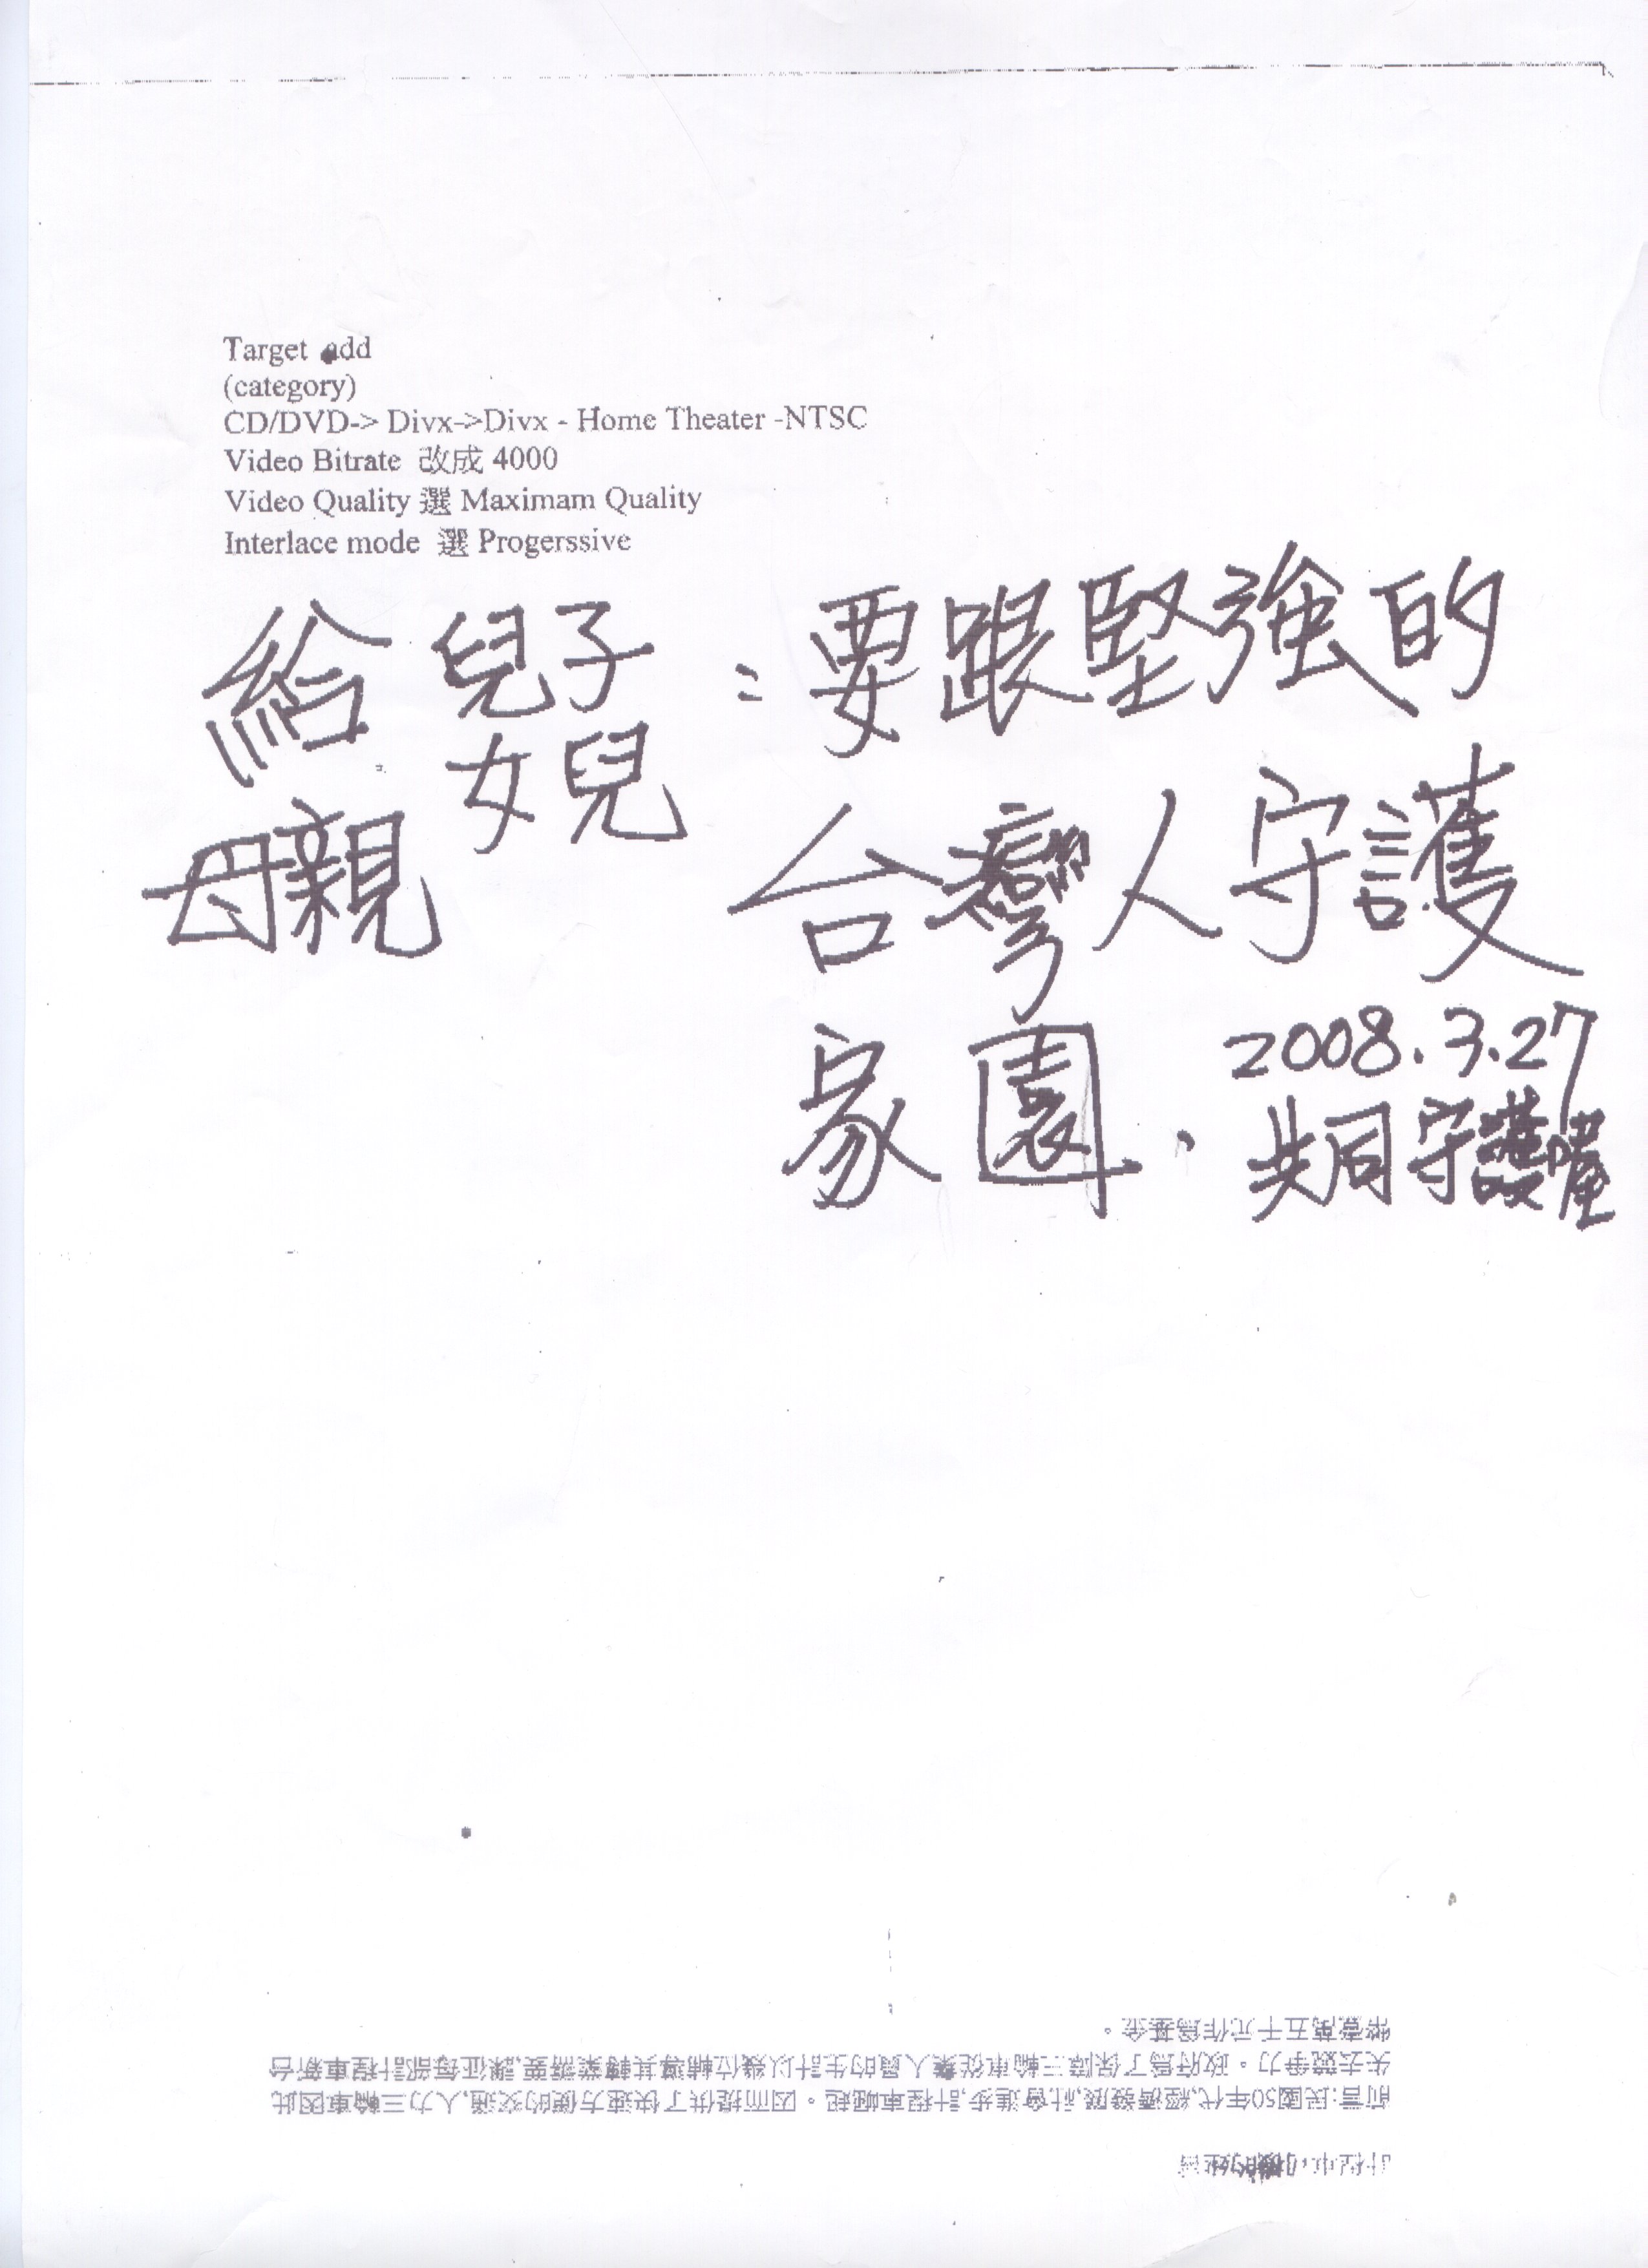 Target add
(category)
CD/DVD-> Divx->Divx - Home Theater -NTSC
Video Bitrate 改成 4000
Video Quality 選 Maximam Quality
Interlace mode 選 Progerssive
給 兒子 : 要跟堅強的
女兒
母親
台灣人守護
家園.
2008.3.27
共同守護喔
計程車司機的
前言:民國50年代,經濟發展,社會進步,計程車崛起。因而提供了快速方便的交通,人力三輪車因此
失去競爭力。政府爲了保障三輪車從業人員的生計以幾位輔導其轉業需要,課征每部計程車新台
幣壹萬五千元作爲基金。